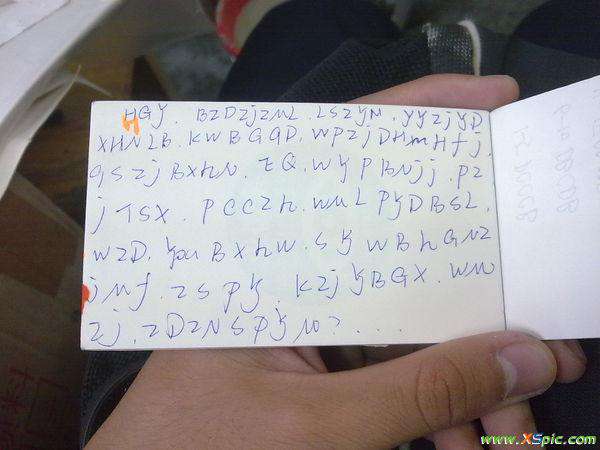 HGY. BZDZjZML. LSZYM. YYZjYD
XHNLB. KWBGQD. WPZjDHMHfj.
QSZjBXhN. ZQ. WYPBNjj. PZ
jTSX. PCCZh. WML PYDBSL.
WZD. YMBXhW. SYWBhGNZ
jMf. ZSPY. KZjYBGX. WM
Zj. ZDZNSPYM? ....
www.XSpic.com